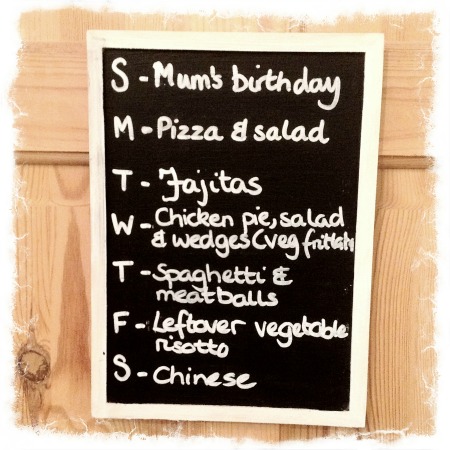 S - Mum's birthday
M - Pizza & salad
T - Fajitas
W - Chicken pie, salad
& wedges (veg frittata
T - Spaghetti &
meatballs
F - Leftover vegetable
risotto
S - Chinese